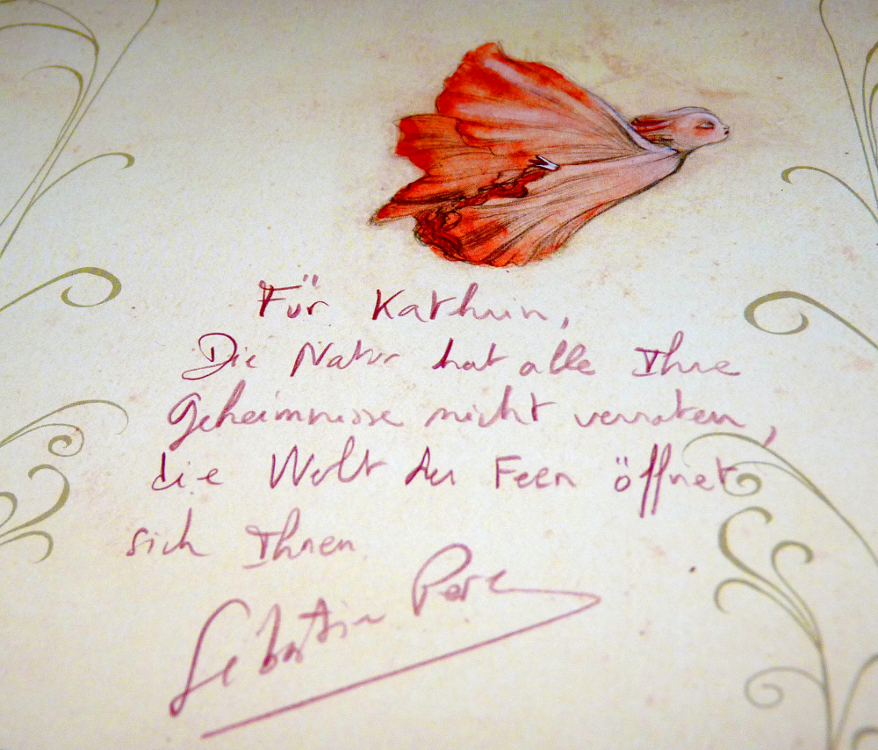 Für Kathrin,
Die Natur hat alle Ihre
Geheimnisse nicht verraten,
die Welt der Feen öffnet
sich Ihnen
Sébastien Perez